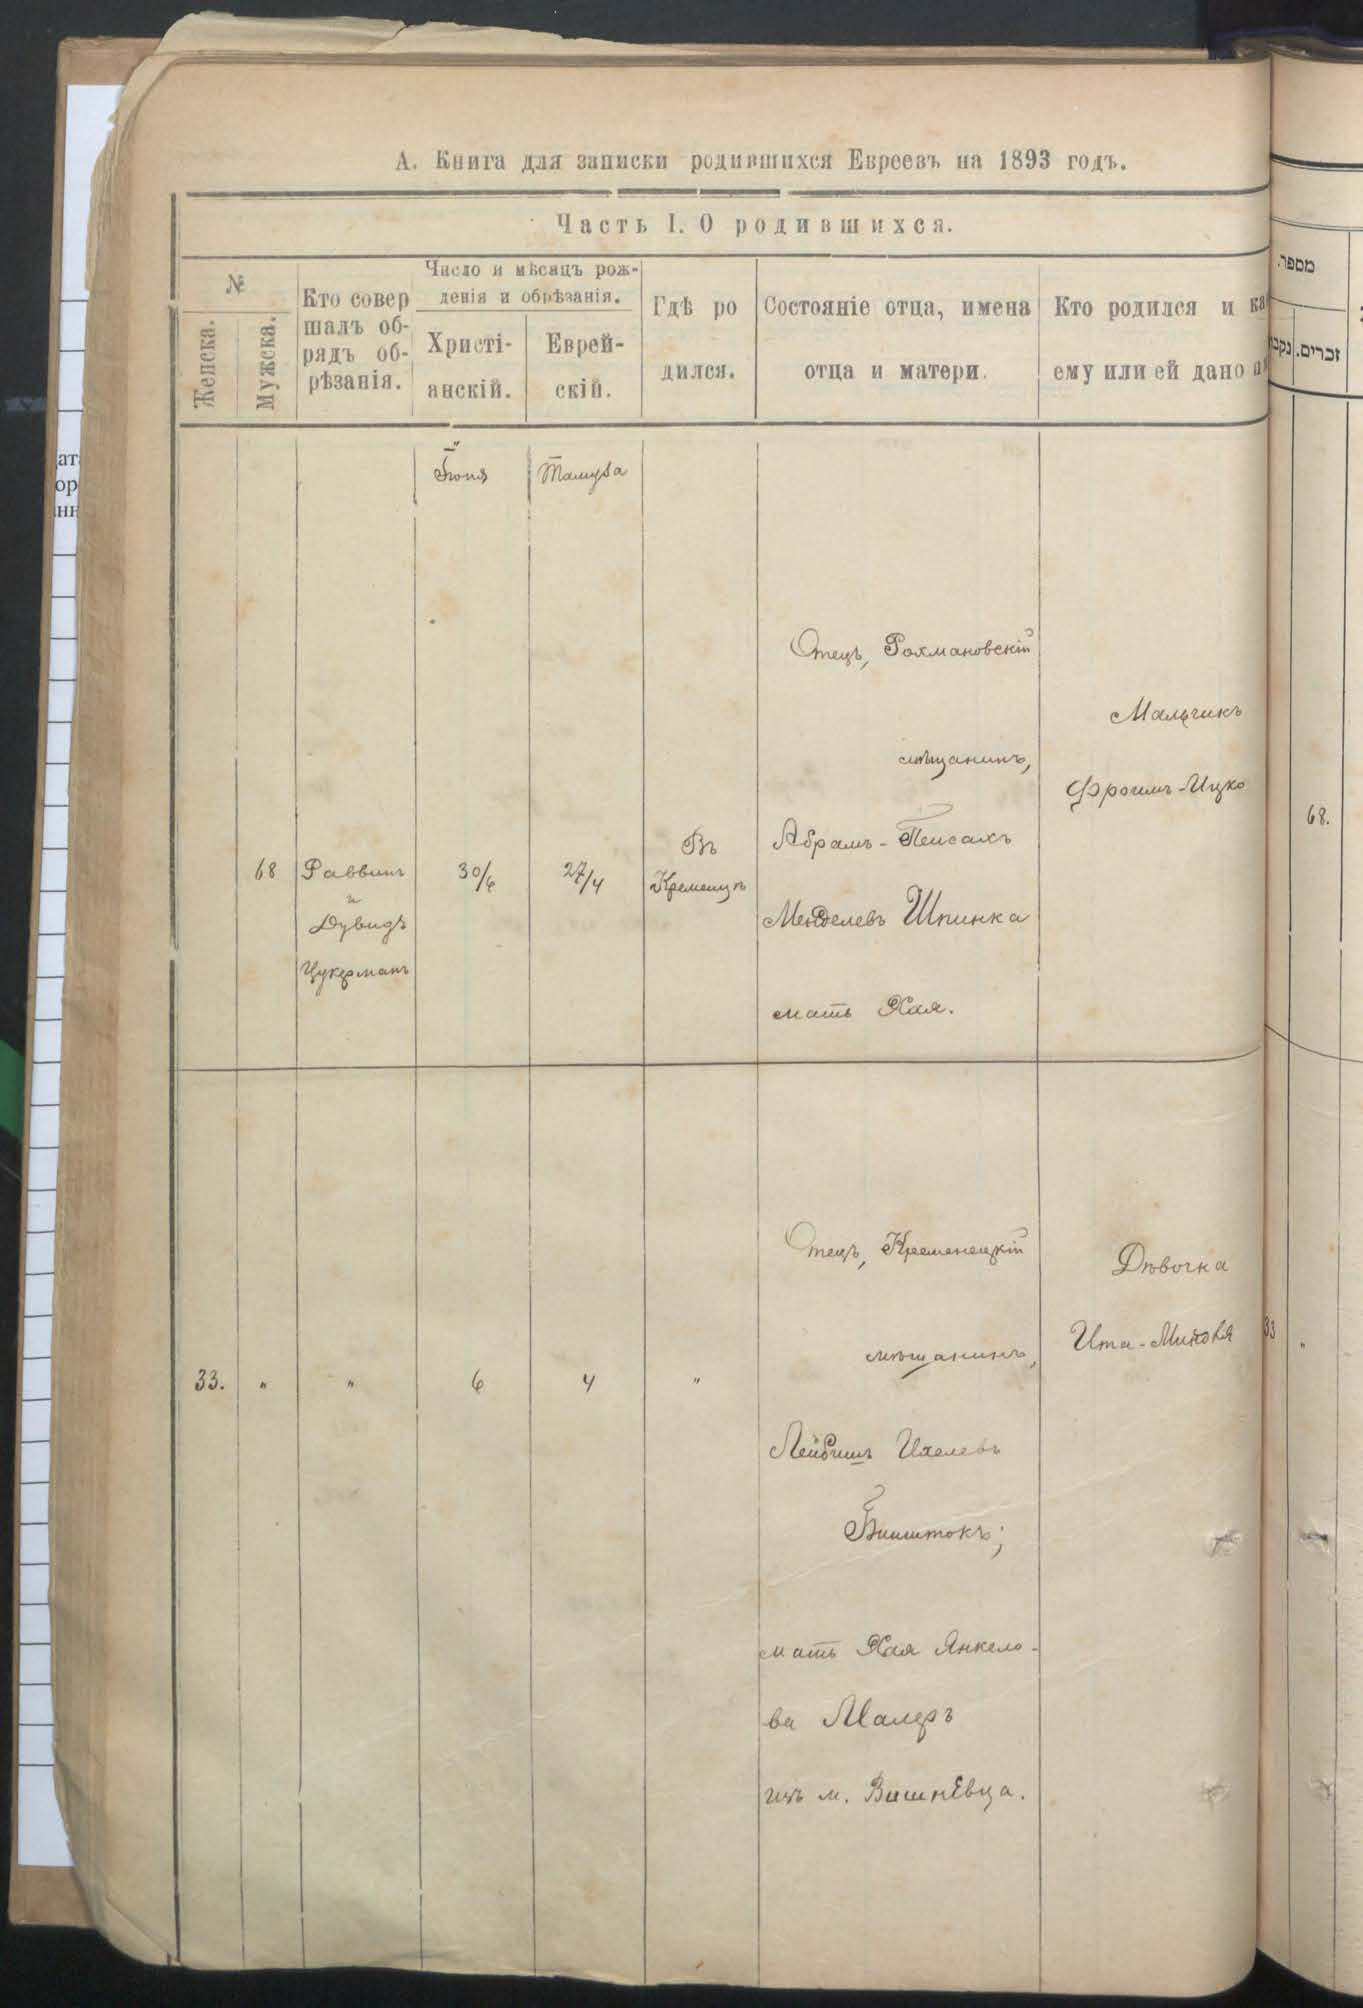 А. Книга для записки родившихся Евреевъ на 1893 годъ.
Часть I. О родившихся.
№
Женска.
Мужска.
Кто совер
шалъ об-
рядъ об-
рѣзанія.
Число и мѣсяцъ рож-
денія и обрѣзанія.
Христі-
анскій.
Еврей-
скій.
Гдѣ ро
дился.
Состояніе отца, имена
отца и матери.
Кто родился и ка
ему или ей дано
מספר.
זכרים.
Іюня
Тамуза
68
Раввинъ
и
Дувидъ
Цукерманъ
30/6
27/4
Въ
Кременцѣ
Отецъ, Рохмановскій
мѣщанинъ,
Абрамъ-Пейсахъ
Менделевъ Шпинка
мать Хая.
Мальчикъ
Фроимъ-Ицко
68.
33.
"
"
6
4
"
Отецъ, Кременецкій
мѣщанинъ,
Лейбишъ Ихелевъ
Бинштокъ;
мать Хая Янкело-
ва Малеръ
изъ м. Вишневца.
Дѣвочка
Ита-
33
"